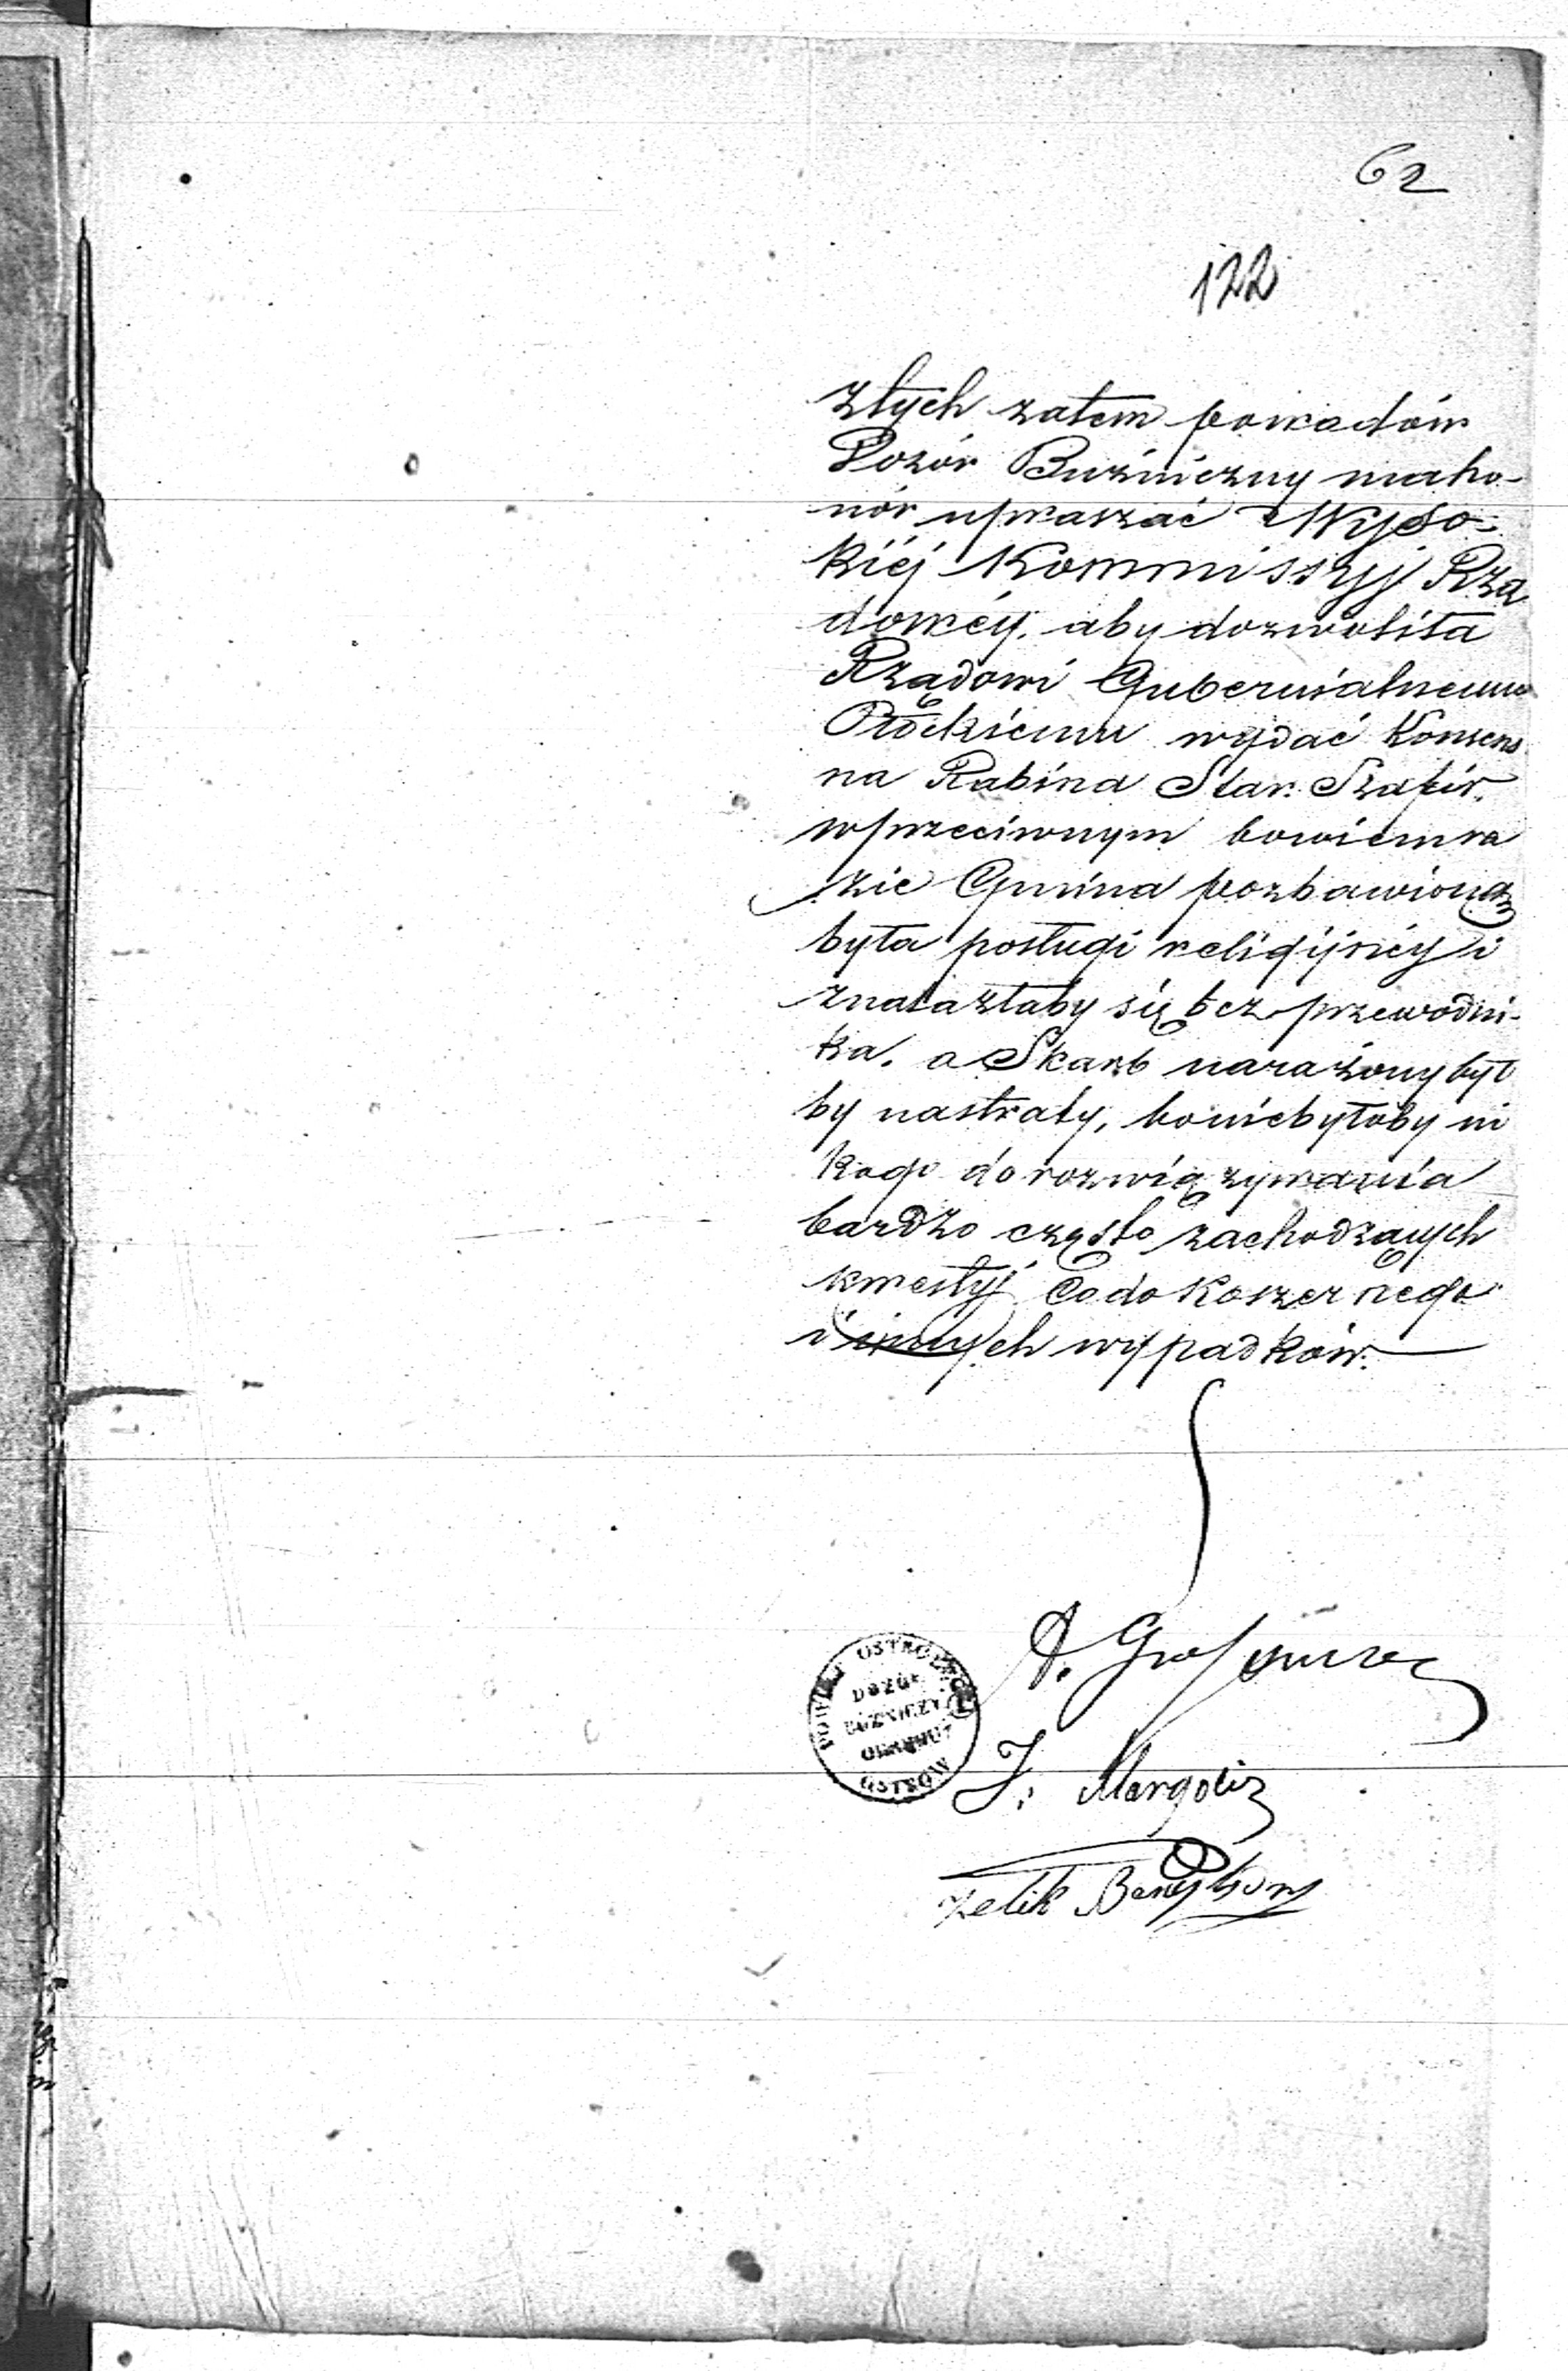 62
122
Z tych zatem powodów
Dozór Buźniczny ma ho-
nór upraszać Wyso-
kiéj Kommissyj Rzą
dowéy, aby dozwoliła
Rządowi Gubernialnemu
Płockiemu wydać Konsens
na Rabina Star. Szafir,
w przeciwnym bowiem ra
zie Gmina pozbawioną
była posługi religijnéy i
znalazłaby się bez przewodni-
ka, a Skarb narażony był
by na straty, bo niebyłoby ni
kogo do rozwiązywania
bardzo często zachodzących
kwestyj Co do Koszernego
i innych wypadków.
POWIAT OSTROŁĘCKI
DOZÓR
BÓŻNICZY
OKRĘGU
OSTRÓW
J. Margolis
Zelik